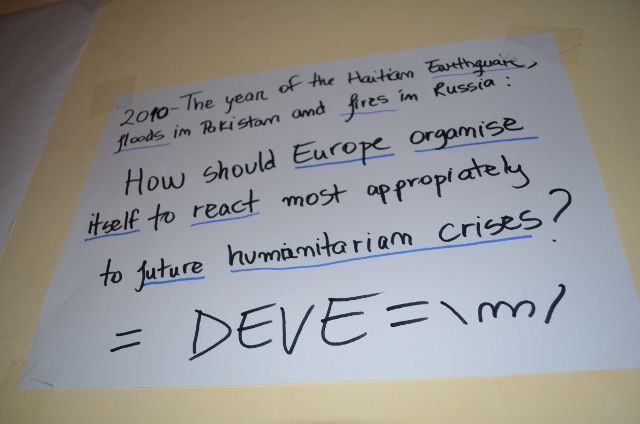 2010-The year of the Haitian Earthquake,
floods in Pakistan and fires in Russia:
How should Europe organise
itself to react most appropiately
to future humanitarian crises?
= DEVE = \m/